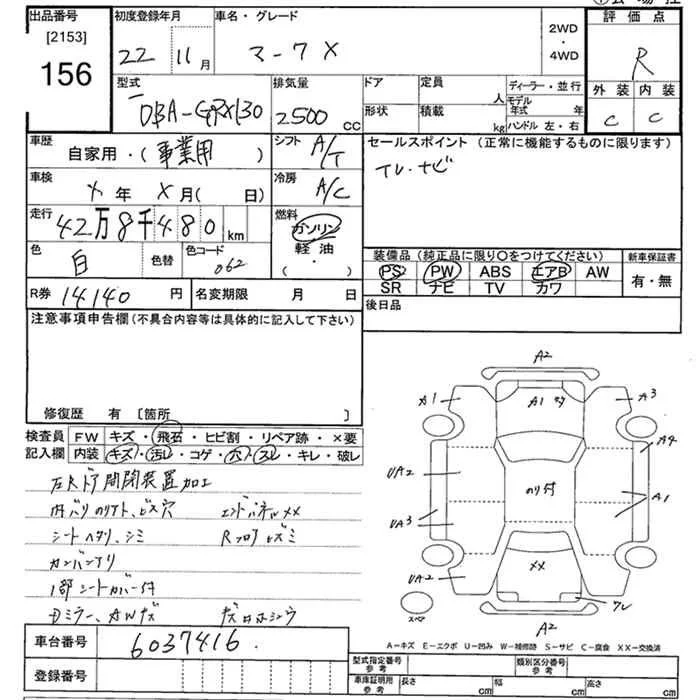 出品番号
[2153]
156
初度登録年月
22 11月
車名・グレード
マークX
2WD
・
4WD
評価点
R
外装 内装
C C
型式
DBA-GRX130
排気量
2500 CC
ドア
形状
定員 人
積載 kg
ディーラー・並行
モデル年式 年
ハンドル 左・右
車歴
自家用・(事業用)
シフト
A/T
車検
X年 X月( 日)
冷房
A/C
走行
42万8千480km
燃料
ガソリン
軽油
( ・ )
色
白
色替
色コード
062
R券 14140円
名変期限 月 日
セールスポイント(正常に機能するものに限ります)
TV.ナビ
装備品(純正品に限り〇をつけてください)
PS PW ABS エアB AW
SR ナビ TV カワ
新車保証書
有・無
後日品
注意事項申告欄(不具合内容等は具体的に記入して下さい)
修復歴 有 [箇所 ]
検査員
記入欄
FW キズ・飛石・ヒビ割・リペア跡・×要
内装 キズ・汚レ・コゲ・穴・スレ・キレ・破レ
左Rドア開閉装置加工
内バリのリアト、ビス穴 エンドパネルXX
シートヘタリ、シミ
カンバンアリ
1部シートカバー付
Dミラー、AWキズ
A2
A1
A1
A3
A4
UA2
UA3
のり付
A1
XX
UA2
ワレ
スペア
A2
A-キズ E-エクボ U-凹み W-補修跡 S-サビ C-腐食 XX-交換済
車台番号
6037416
登録番号
型式指定番号
参考
類別区分番号
参考
車庫証明用
参考
長さ cm
幅 cm
高さ cm